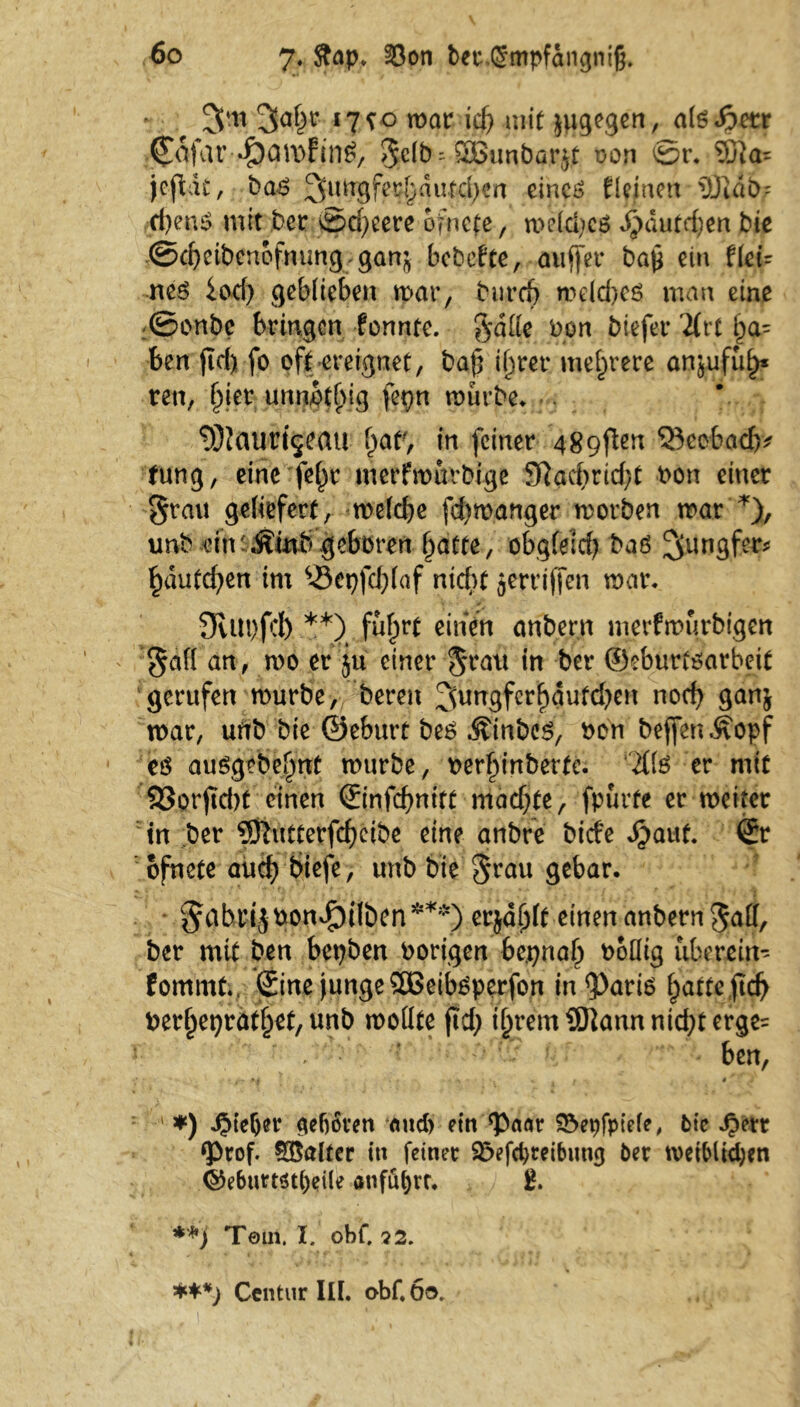 60 7. Kap. Von der Empfängniß.
Im Jahr 1750 war ich mit zugegen, als Herr
Cäsar Hawkins, Feld-Wundarzt von Sr. Ma-
jestät, das Jungferhäutchen eines kleinen Mäd-
chens mit der Scheere öfnete, welches Häutchen die
Scheibenöfnung ganz bedekte, ausser daß ein klei-
nes Loch geblieben war, durch welches man eine
Sonde bringen konnte. Fälle von dieser Art ha-
ben sich so oft ereignet, daß ihrer mehrere anzufüh-
ren, hier unnöthig seyn würde.
Mauriçeau hat, in seiner 489sten Beobach-
tung, eine sehr merkwürdige Nachricht von einer
Frau geliefert, welche schwanger worden war *),
und ein Kind geboren hatte, obgleich das Jungfer-
häutchen im Beyschlaf nicht zerrissen war.
Ruysch **) führt einen andern merkwürdigen
Fall an, wo er zu einer Frau in der Geburtsarbeit
gerufen wurde, deren Jungferhäutchen noch ganz
war, und die Geburt des Kindes, von dessen Kopf
es ausgedehnt wurde, verhinderte. Als er mit
Vorsicht einen Einschnitt machte, spürte er weiter
in der Mutterscheide eine andre dicke Haut. Er
öfnete auch diese, und die Frau gebar.
Fabriz von Hilden ***) erzählt einen andern Fall,
der mit den beyden vorigen beynah völlig überein-
kommt. Eine junge Weibsperson in Paris hatte sich
verheyrathet, und wollte sich ihrem Mann nicht erge-
ben,
*) Hieher gehören auch ein Paar Beyspiele, die Herr
Prof. Walter in seiner Beschreibung der weiblichen
Geburtstheile anführt. L.
**) Tom. I. obs. 22.
***) Centur III. obs. 60.